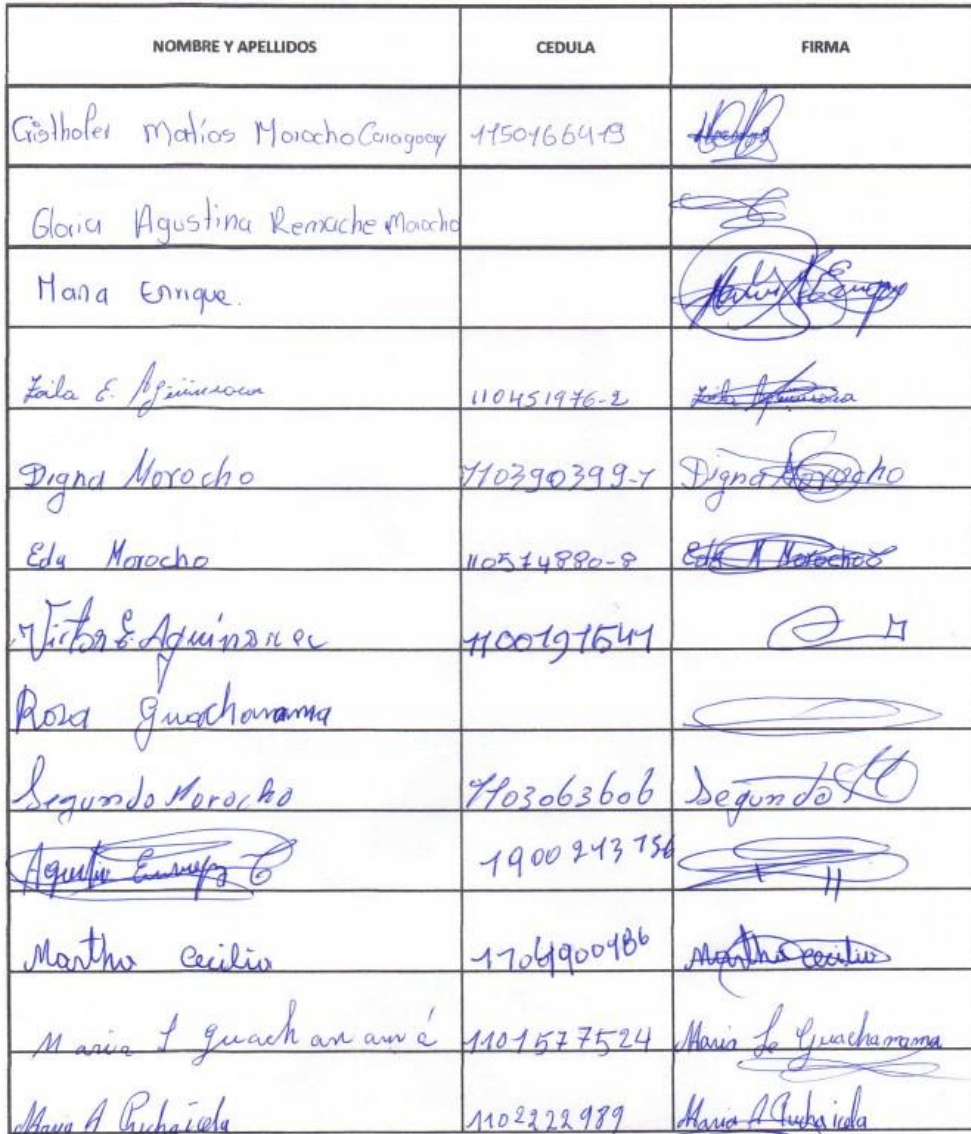 NOMBRE Y APELLIDOS CEDULA FIRMA
Cristhofer Matías Morocho Caragoay 1150166419
Gloria Agustina Remache Morocho
Maria Enrique.
Zoila E. 110451976-2
Digna Morocho 110390399-1 Digna Morocho
Eda Morocho 110574880-8 Eda M Morocho
Victor E. Aguinsaca 1100191541
Rosa Guachanama
Segundo Morocho 1103063606 Segundo
Agustin 1900243156
Martha Cecilia Martha Cecilia
Maria L Guachanamá 1101577524 Maria Guachanama
Maria A Puchaicela 1102222989 Maria A Puchaicela